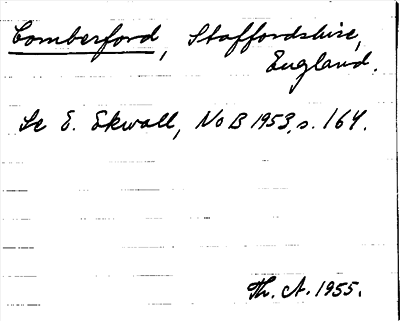 Comberford, Staffordshire,
England.
Se E. Ekwall, NoB 1953, s. 164.
Th. A. 1955.